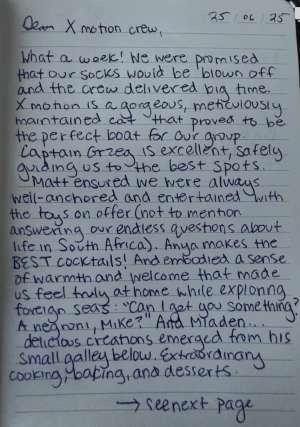 25/06/25
Dear X motion crew,
What a week! We were promised
that our socks would be blown off
and the crew delivered big time.
X motion is a gorgeous, meticulously
maintained cat that proved to be
the perfect boat for our group.
Captain Grzeg is excellent, safely
guiding us to the best spots.
Matt ensured we were always
well-anchored and entertained with
the toys on offer (not to mention
answering our endless questions about
life in South Africa). Anya makes the
BEST cocktails! And embodied a sense
of warmth and welcome that made
us feel truly at home while exploring
foreign seas: "Can I get you something?
A negroni, Mike?" And Mladen...
delicious creations emerged from his
small galley below. Extraordinary
cooking, baking, and desserts.
→ see next page